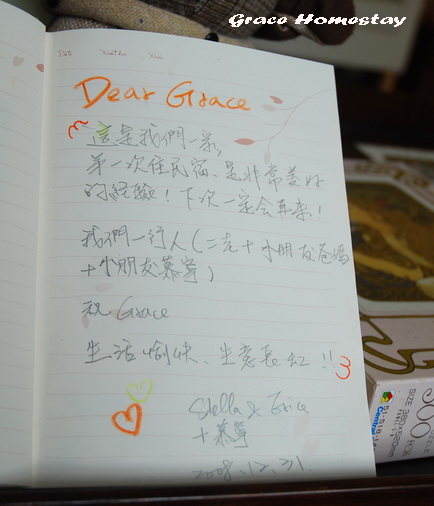 Grace Homestay
Dear Grace
這是我們一家,
第一次住民宿、是非常美好
的經驗!下次一定會再來!
我們一行人(二老+小朋友爸媽
+小朋友慕寧)
祝 Grace
生活愉快、生意長紅!!
Stella & Eric
+慕寧
2008.12.31.
SIZE 380X260MM
500